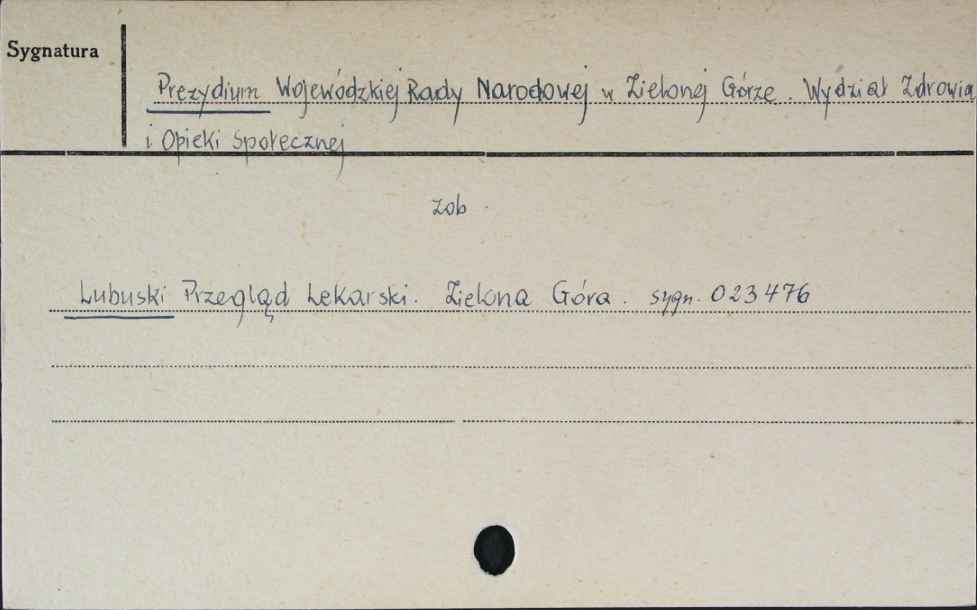 Sygnatura
Prezydium Wojewódzkiej Rady Narodowej w Zielonej Górze. Wydział Zdrowia
i Opieki Społecznej
zob.
Lubuski Przegląd Lekarski. Zielona Góra. sygn. 023476